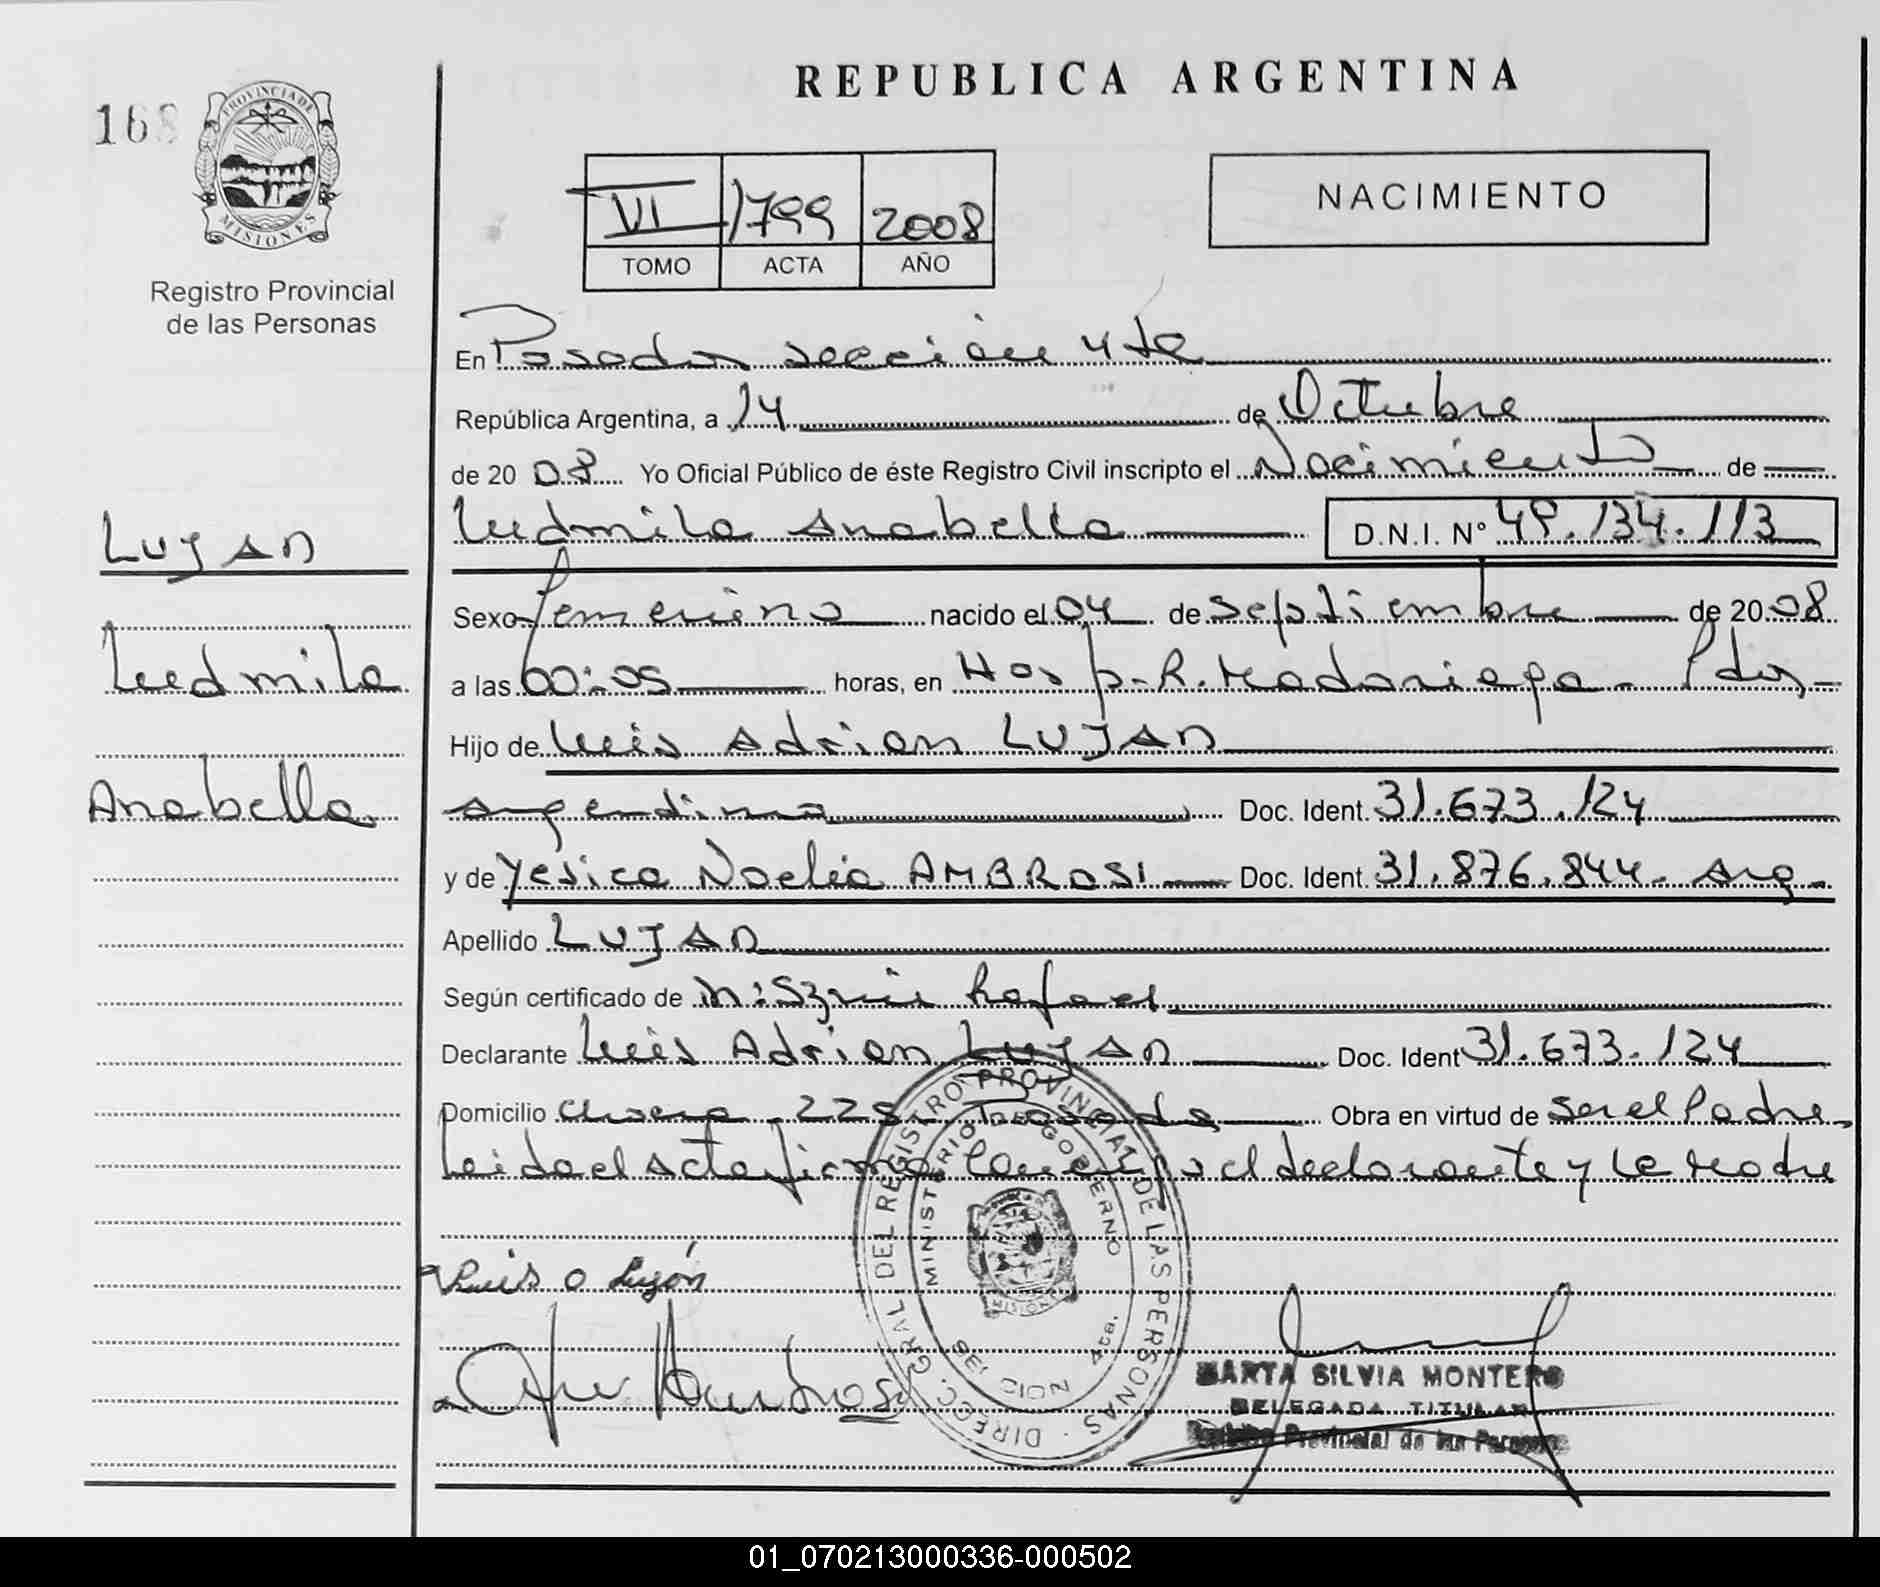 REPUBLICA ARGENTINA
168
PROVINCIA DE
MISIONES
Registro Provincial
de las Personas
VI 1799 2008
TOMO ACTA AÑO
NACIMIENTO
En Posadas sección 4ta
República Argentina, a 14 de Octubre
de 20 08 Yo Oficial Público de éste Registro Civil inscripto el Nacimiento de
Ludmila Anabella D.N.I. Nº 49.134.113
LUJAN
Ludmila
Anabella
Sexo femenino nacido el 04 de Septiembre de 20 08
a las 00:05 horas, en Hosp. R. Madariaga - Pdas -
Hijo de Luis Adrian LUJAN
argentino Doc. Ident. 31.673.124
y de Yesica Noelia AMBROSI Doc. Ident. 31.876.844 - Arg -
Apellido LUJAN
Según certificado de Rafael
Declarante Luis Adrian LUJAN Doc. Ident 31.673.124
Domicilio 225 Posadas Obra en virtud de ser el Padre
Leida el Acta firma el declarante y la Madre
DIRECC. GRAL. DEL REGISTRO PROVINCIAL DE LAS PERSONAS
MINISTERIO DE GOBIERNO
MISIONES
4ta.
Luis a Luján
MARTA SILVIA MONTERO
DELEGADA TITULAR
Registro Provincial de las Personas
01_070213000336-000502